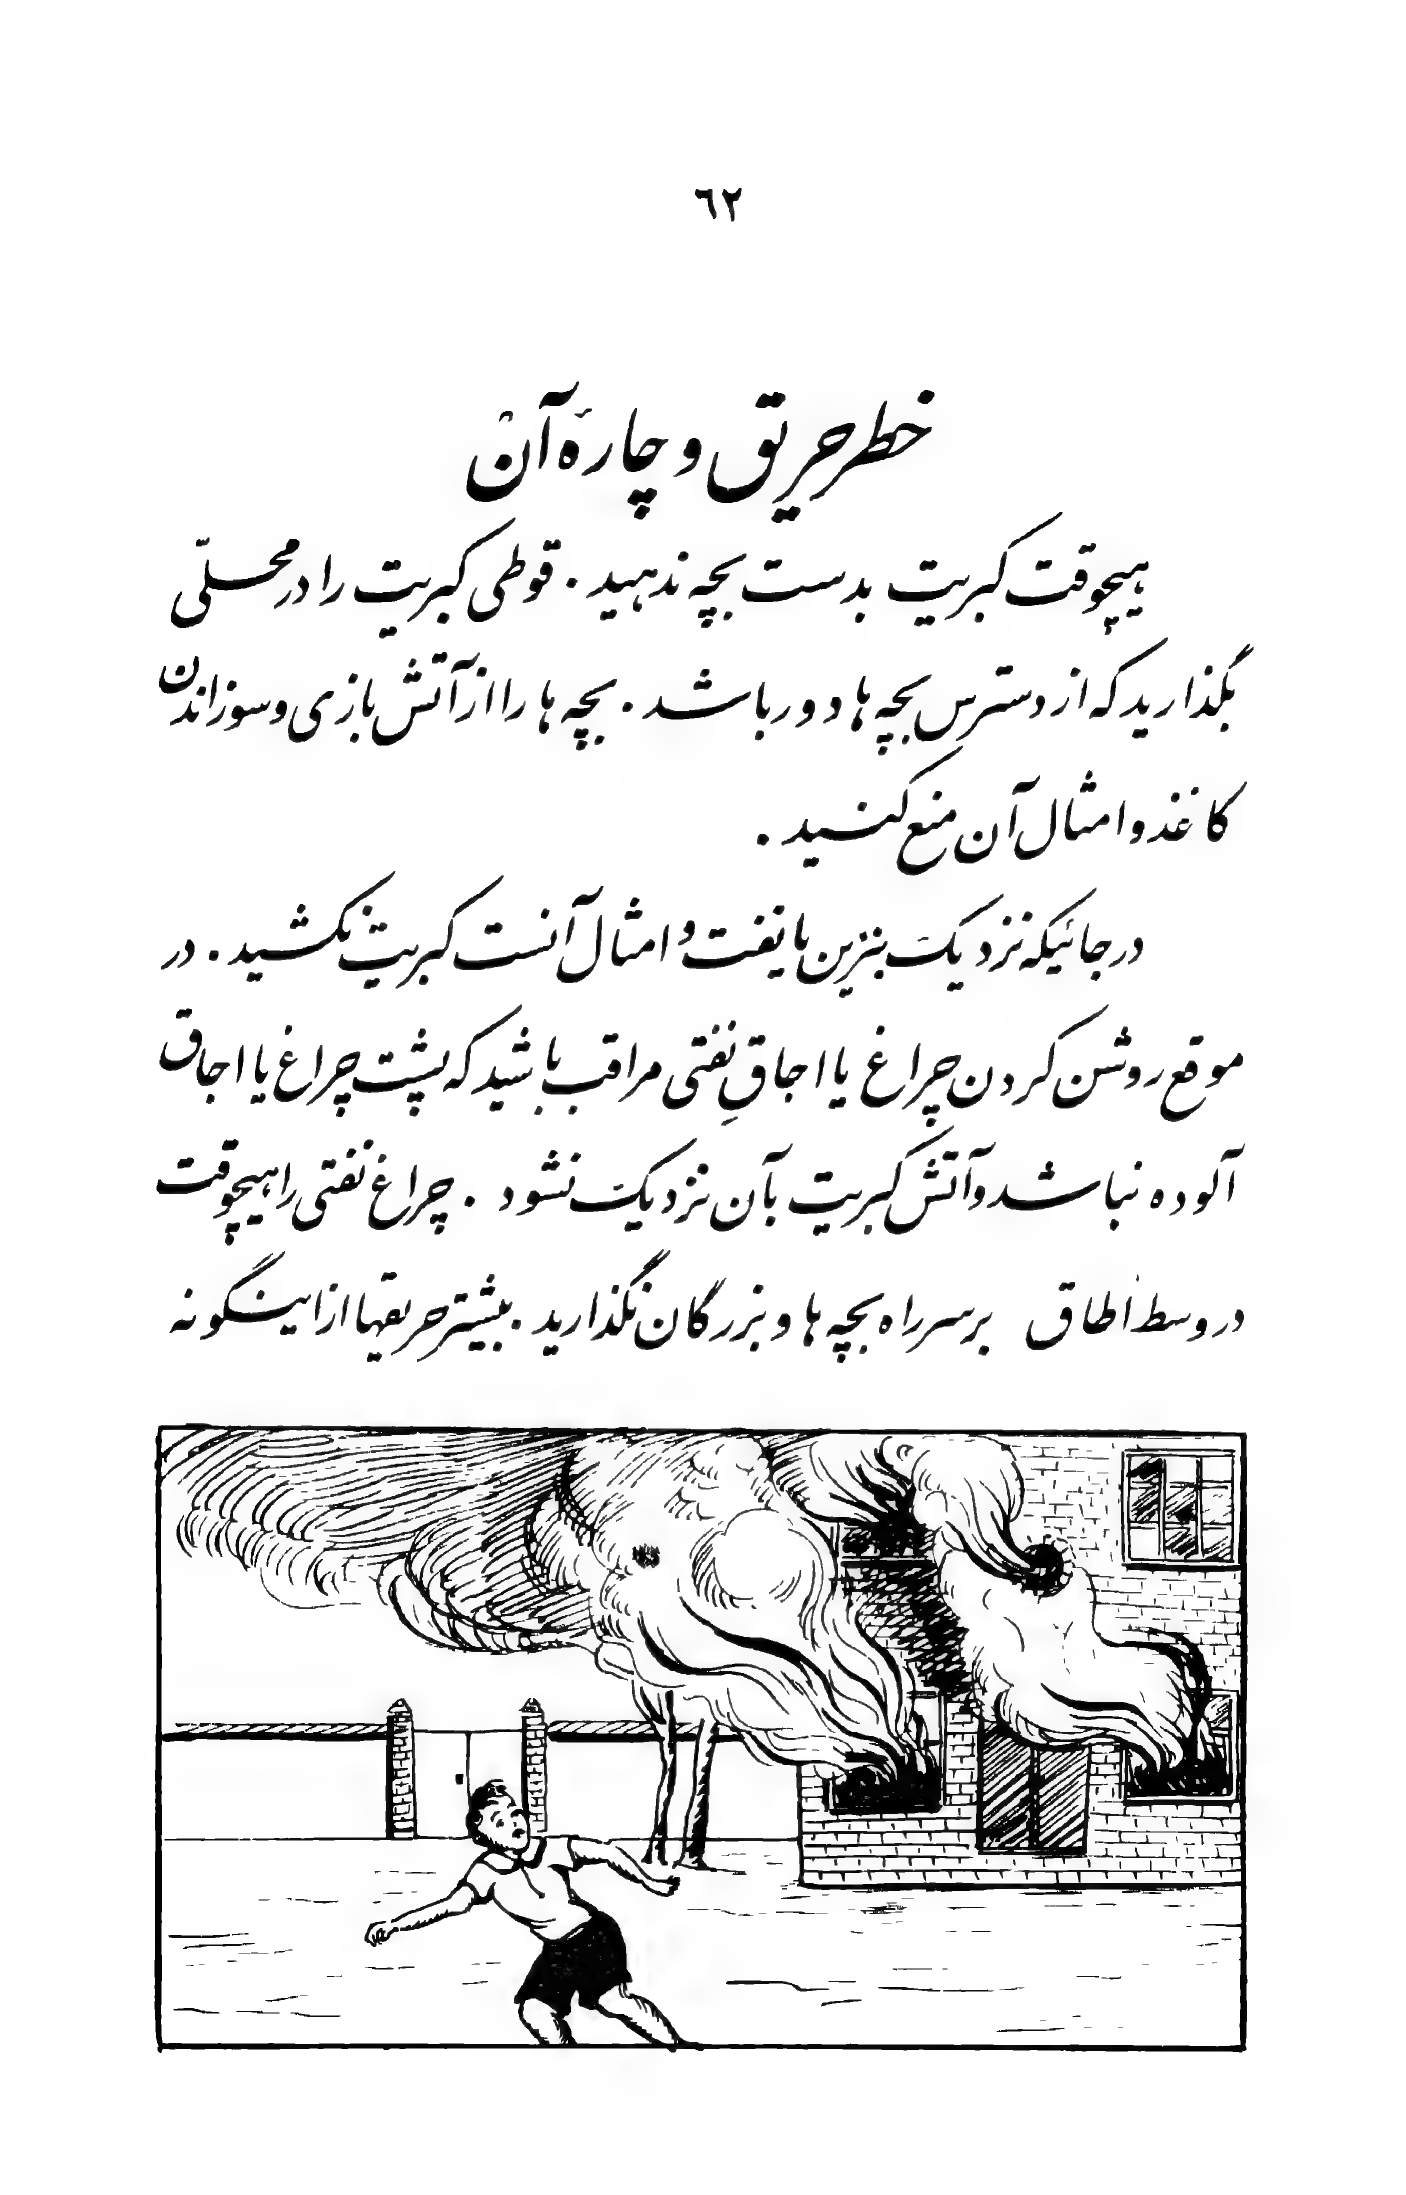 ٦٢
خطر حریق و چارهٔ آن
هیچوقت کبریت بدست بچه ندهید . قوطی کبریت را در محلّی
بگذارید که از دسترس بچه ها دور باشد . بچه ها را از آتش بازی و سوزاندن
کاغذ و امثال آن منع کنید .
در جائیکه نزدیک بنزین یا نفت و امثال آنست کبریت نکشید . در
موقع روشن کردن چراغ یا اجاقِ نفتی مراقب باشید که پشت چراغ یا اجاق
آلوده نباشد و آتش کبریت بآن نزدیک نشود . چراغ نفتی را هیچوقت
در وسط اطاق بر سر راه بچه ها و بزرگان نگذارید . بیشتر حریقها از اینگونه